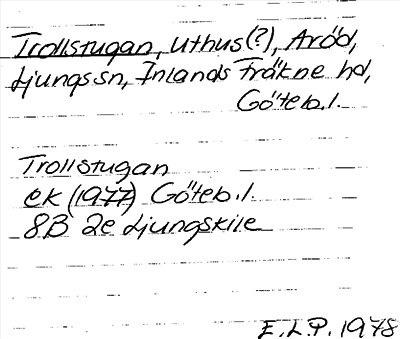 Trollstugan, Uthus(?), Aröd,
Ljungs sn, Inlands Fräkne hd,
Göteb.l.
Trollstugan
ek (1977) Göteb.l.
8B 2e Ljungskile
E.L.P. 1978